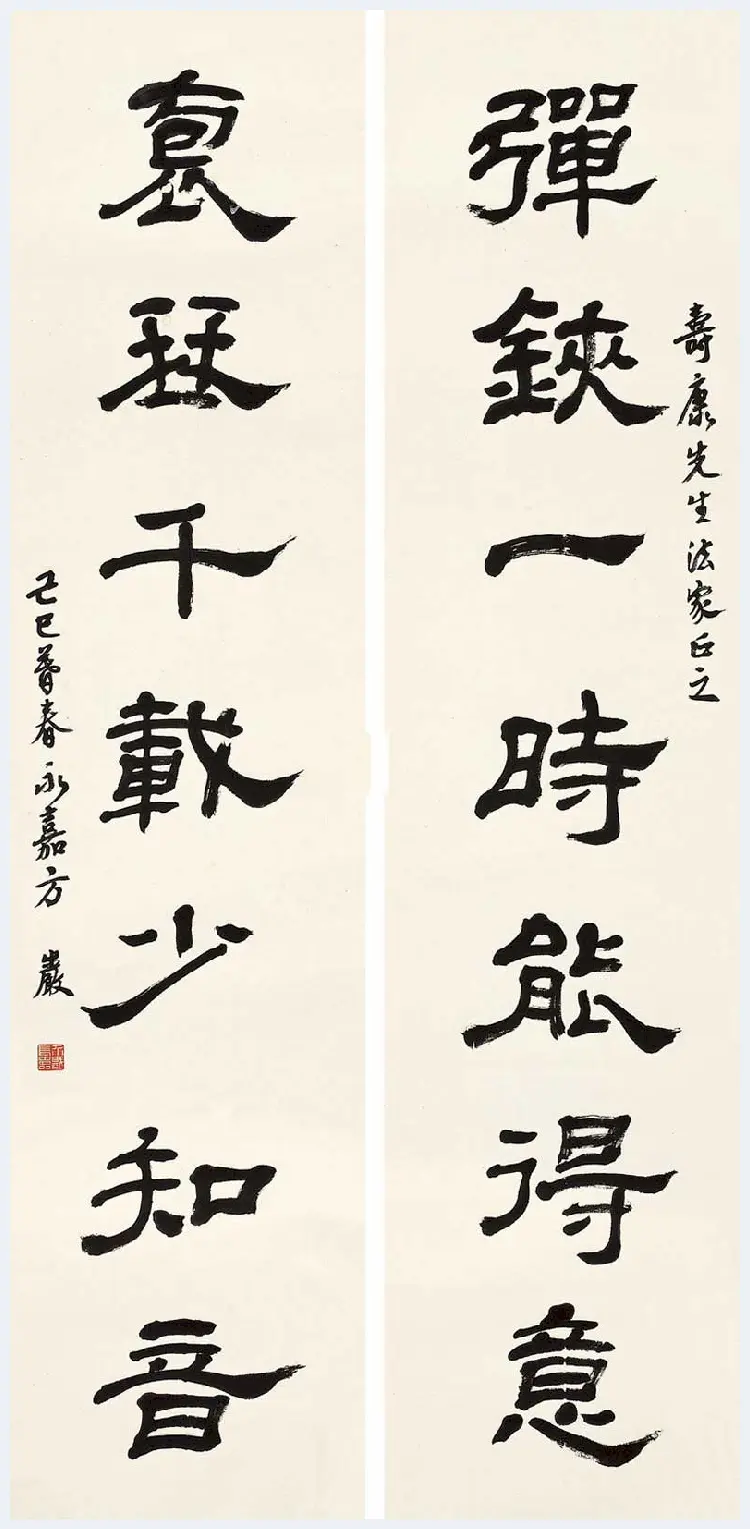 壽康先生法家正之
彈鋏一時能得意
袌琴千載少知音
己巳暮春永嘉方巖